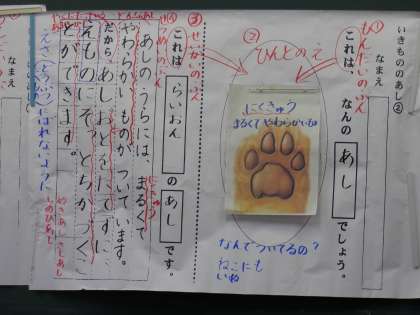 いきもののあし②
なまえ
①もんだいのぶん
これは、なんの あし でしょう。
②
ひんとのえ
にくきゅう
まるくてやわらかいもの
なんでついてるの?
ねこにも
いぬ
③せいかいのぶん
これは らいおん の あし です。
④せつめいのぶん
あしのうらには、まるくて
にくきゅう
やわらかいものがついています。
だから、あしおとをたてずに、
えものにそっとちかづくこ
とができます。
なまえ